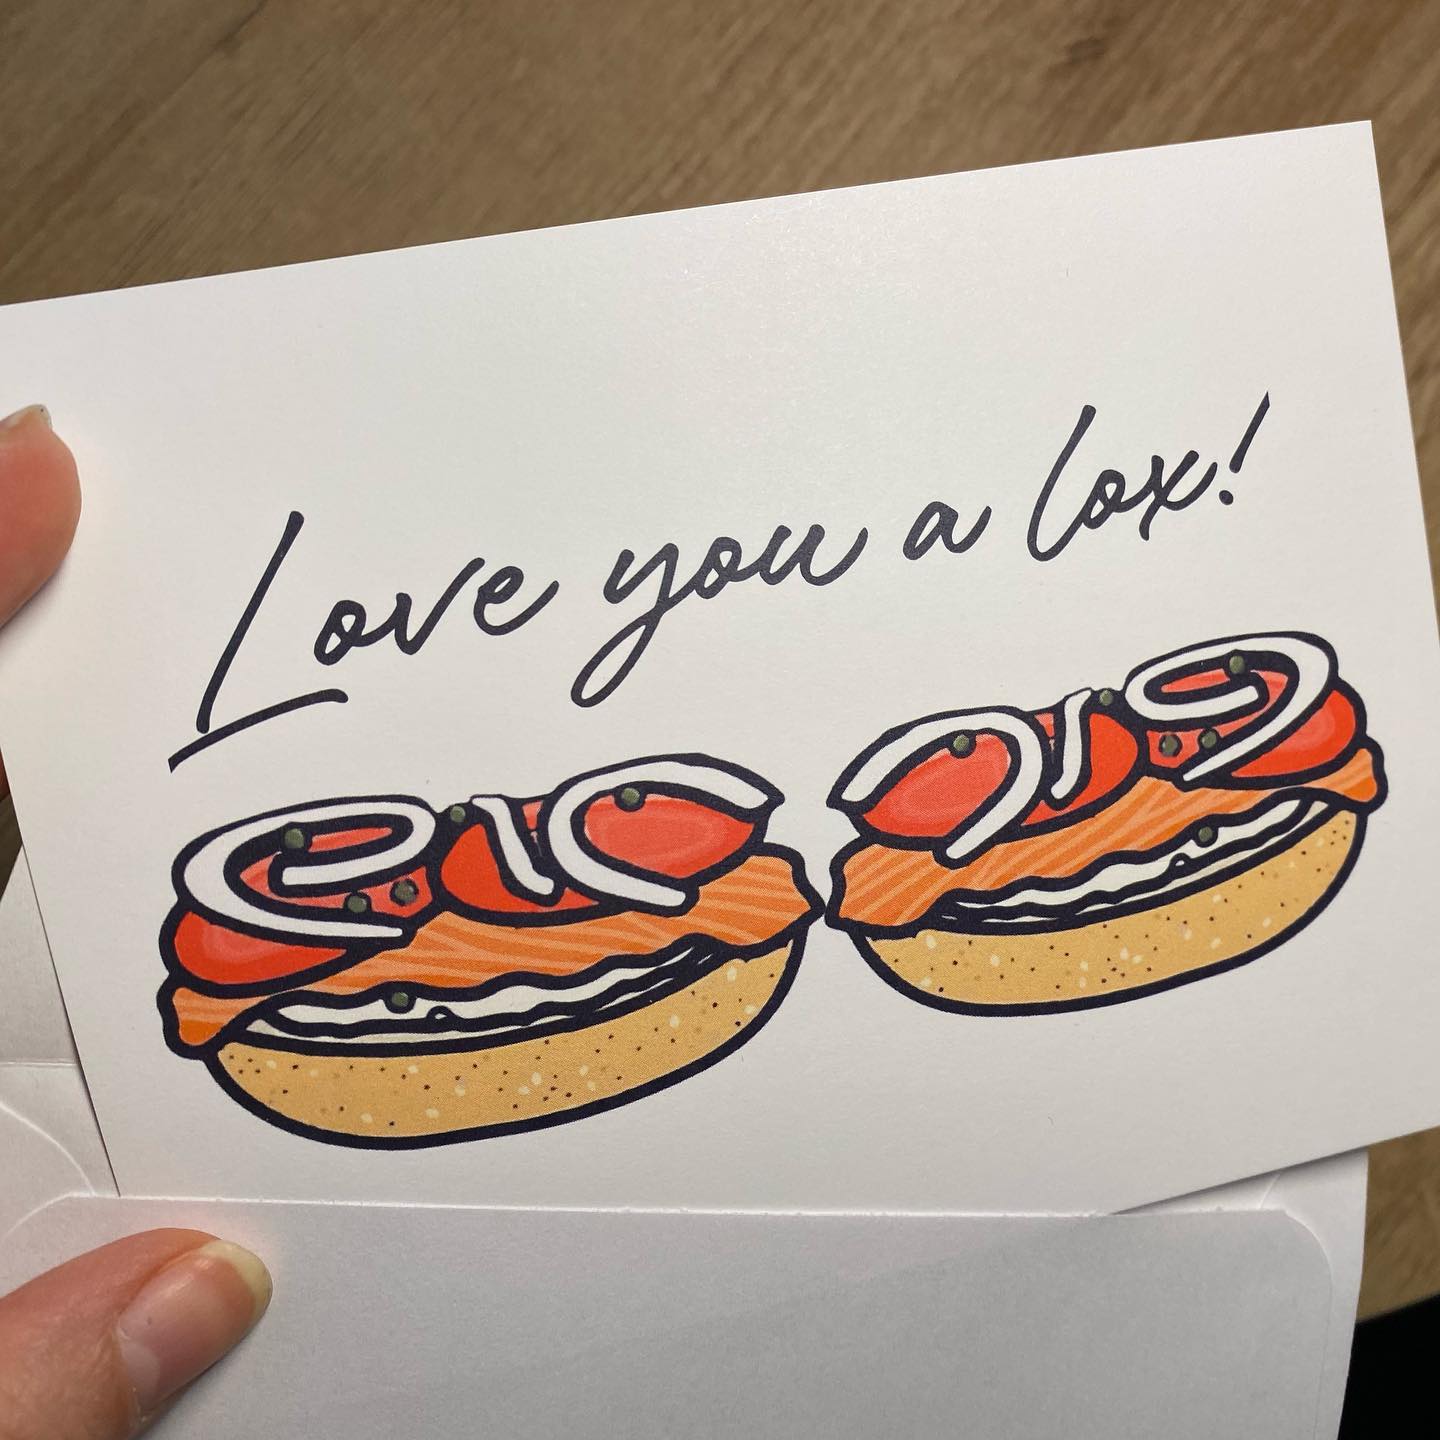 Love you a lox!